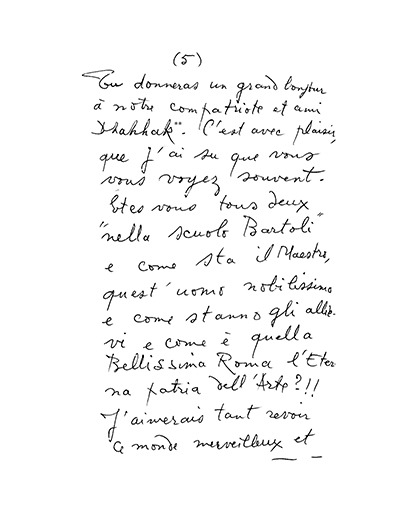 (5)
Tu donneras un grand bonjour
à notre compatriote et ami
Dhahhak". C'est avec plaisir,
que j'ai su que vous
vous voyez souvent.
Êtes vous tous deux
"nella scuolo Bartoli"
e come sta il Maestro,
quest'uomo nobilissimo
e come stanno gli allie-
vi e come è quella
Bellissima Roma l'Eter
na patria dell'Arte?!!
J'aimerais tant revoir
ce monde merveilleux et